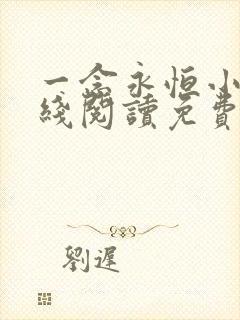 一念永恒小
綫閱讀免費
劉遲